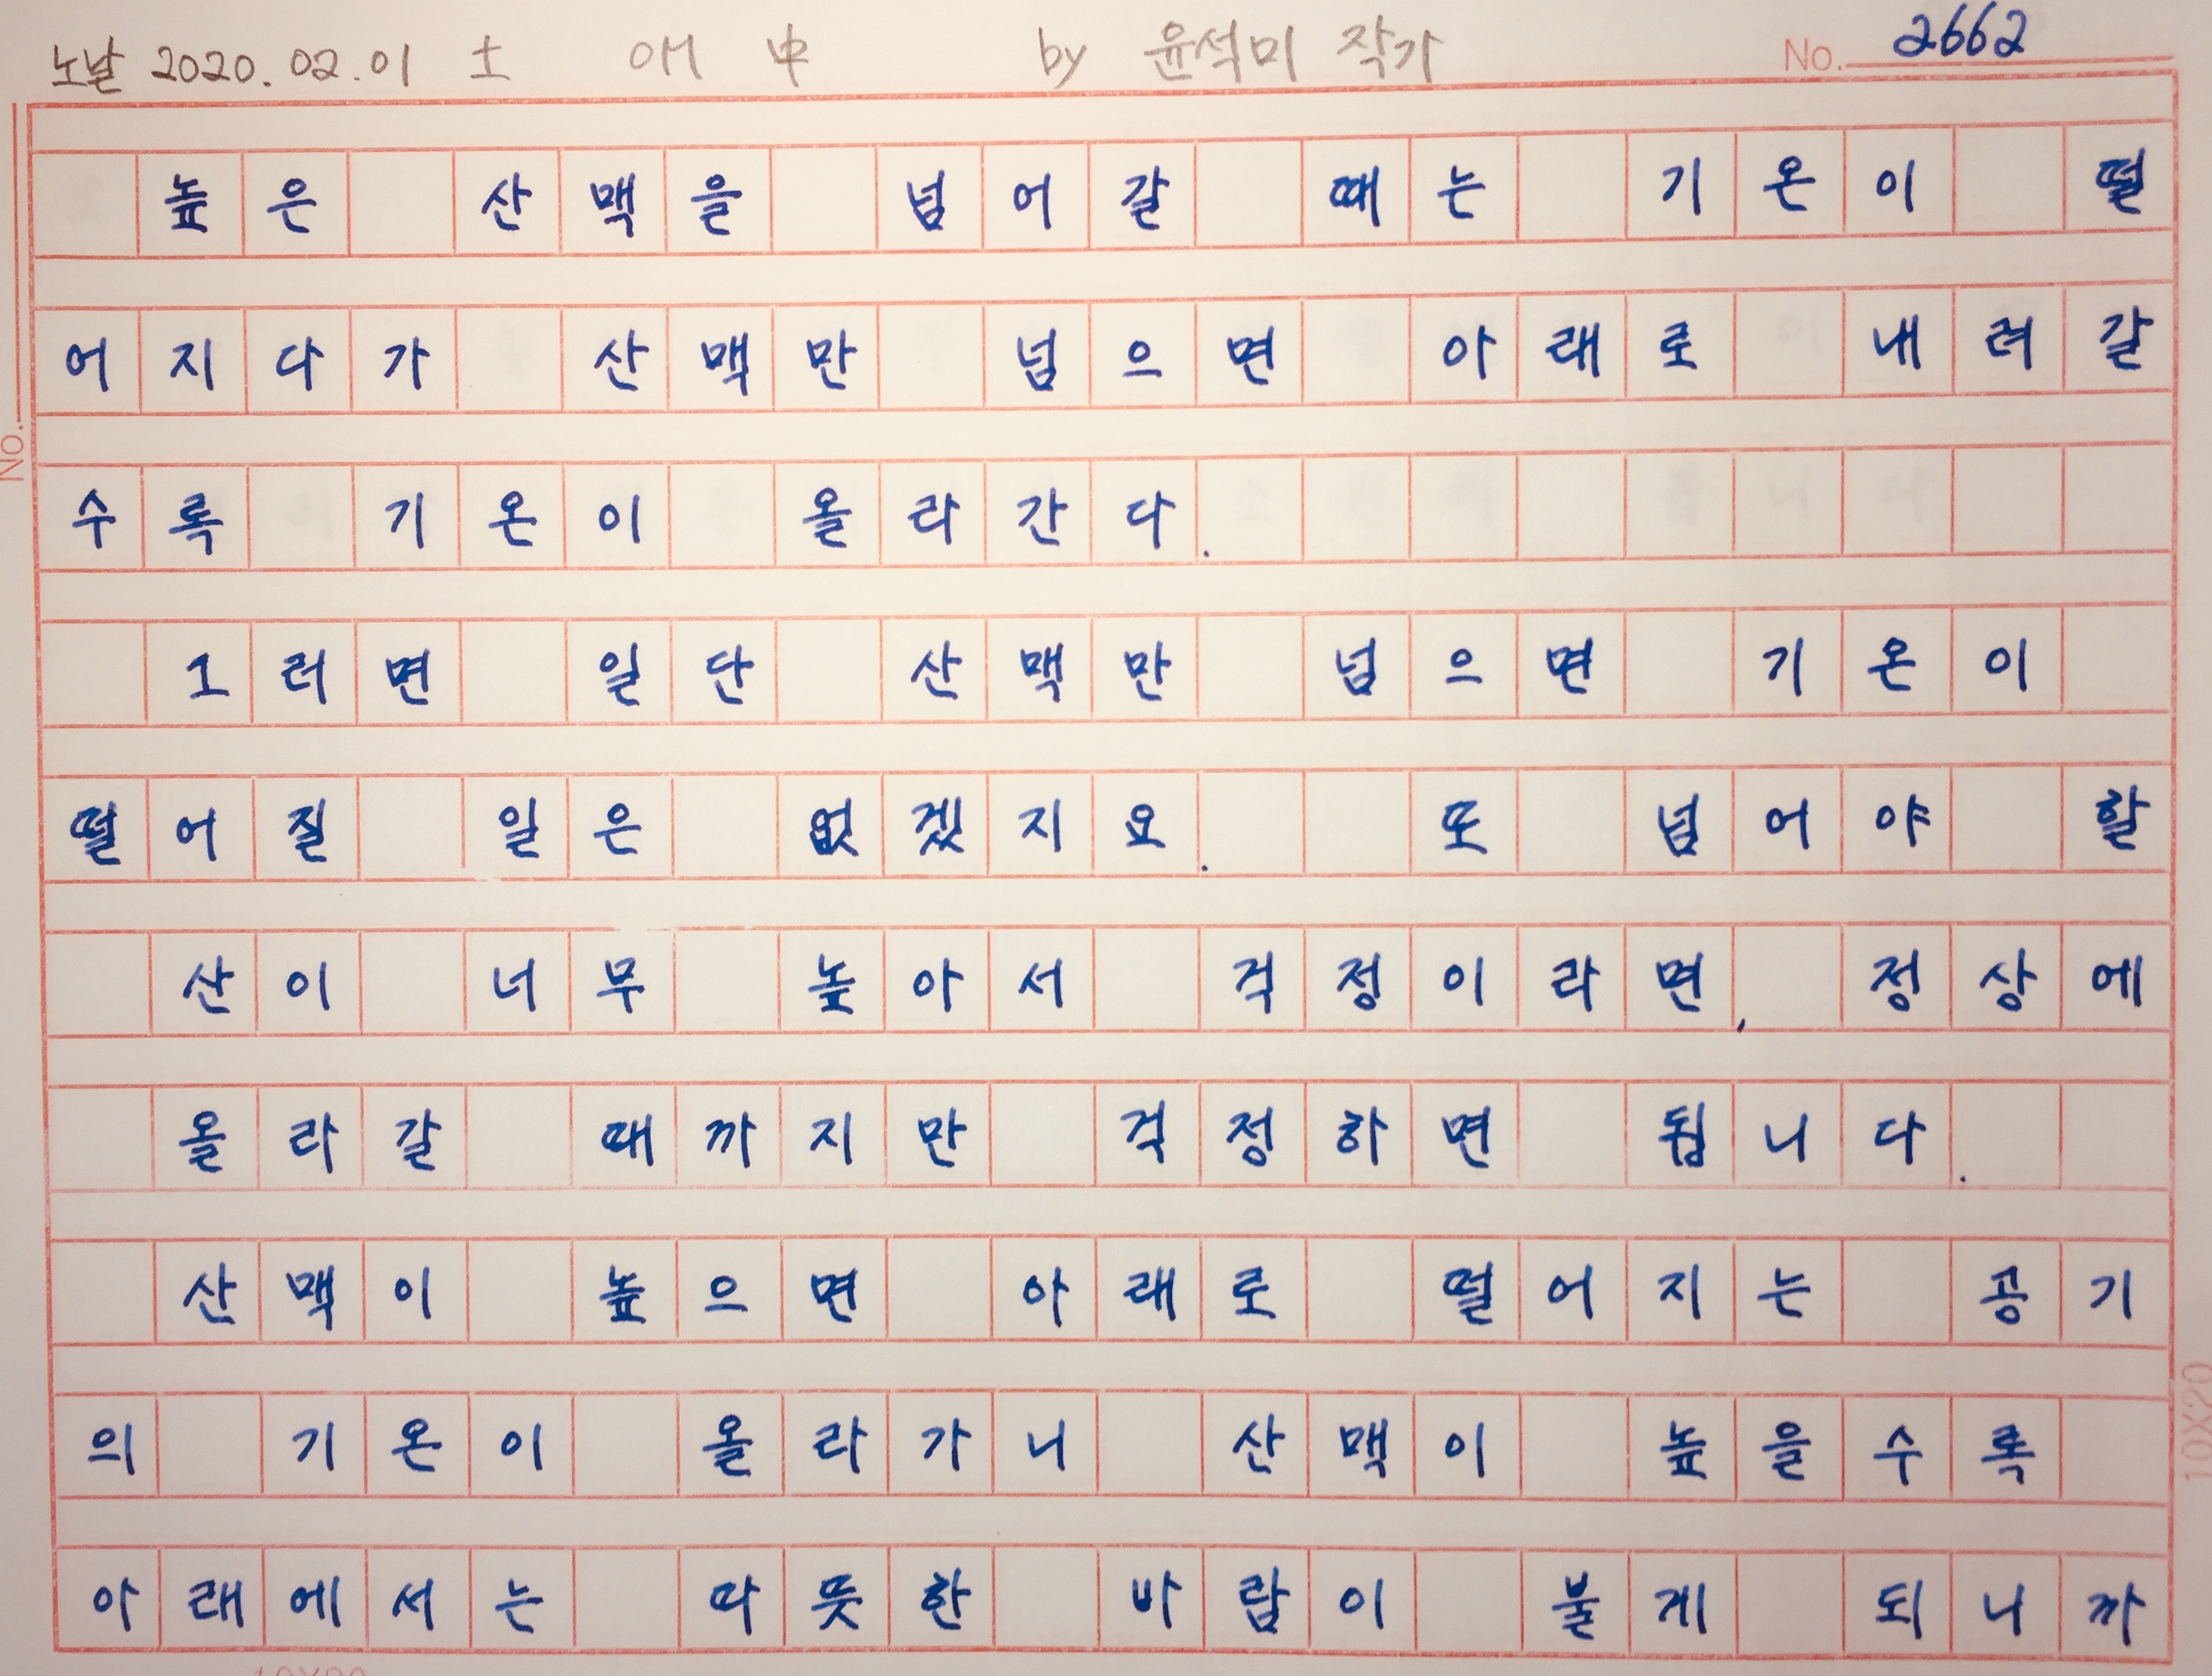 노날 2020.02.01 土 애 中 by 윤석미 작가 No. 2662
높은 산맥을 넘어갈 때는 기온이 떨
어지다가 산맥만 넘으면 아래로 내려갈
수록 기온이 올라간다.
그러면 일단 산맥만 넘으면 기온이
떨어질 일은 없겠지요. 또 넘어야 할
산이 너무 높아서 걱정이라면, 정상에
올라갈 때까지만 걱정하면 됩니다.
산맥이 높으면 아래로 떨어지는 공기
의 기온이 올라가니 산맥이 높을수록
아래에서는 따뜻한 바람이 불게 되니까
No.
10X20